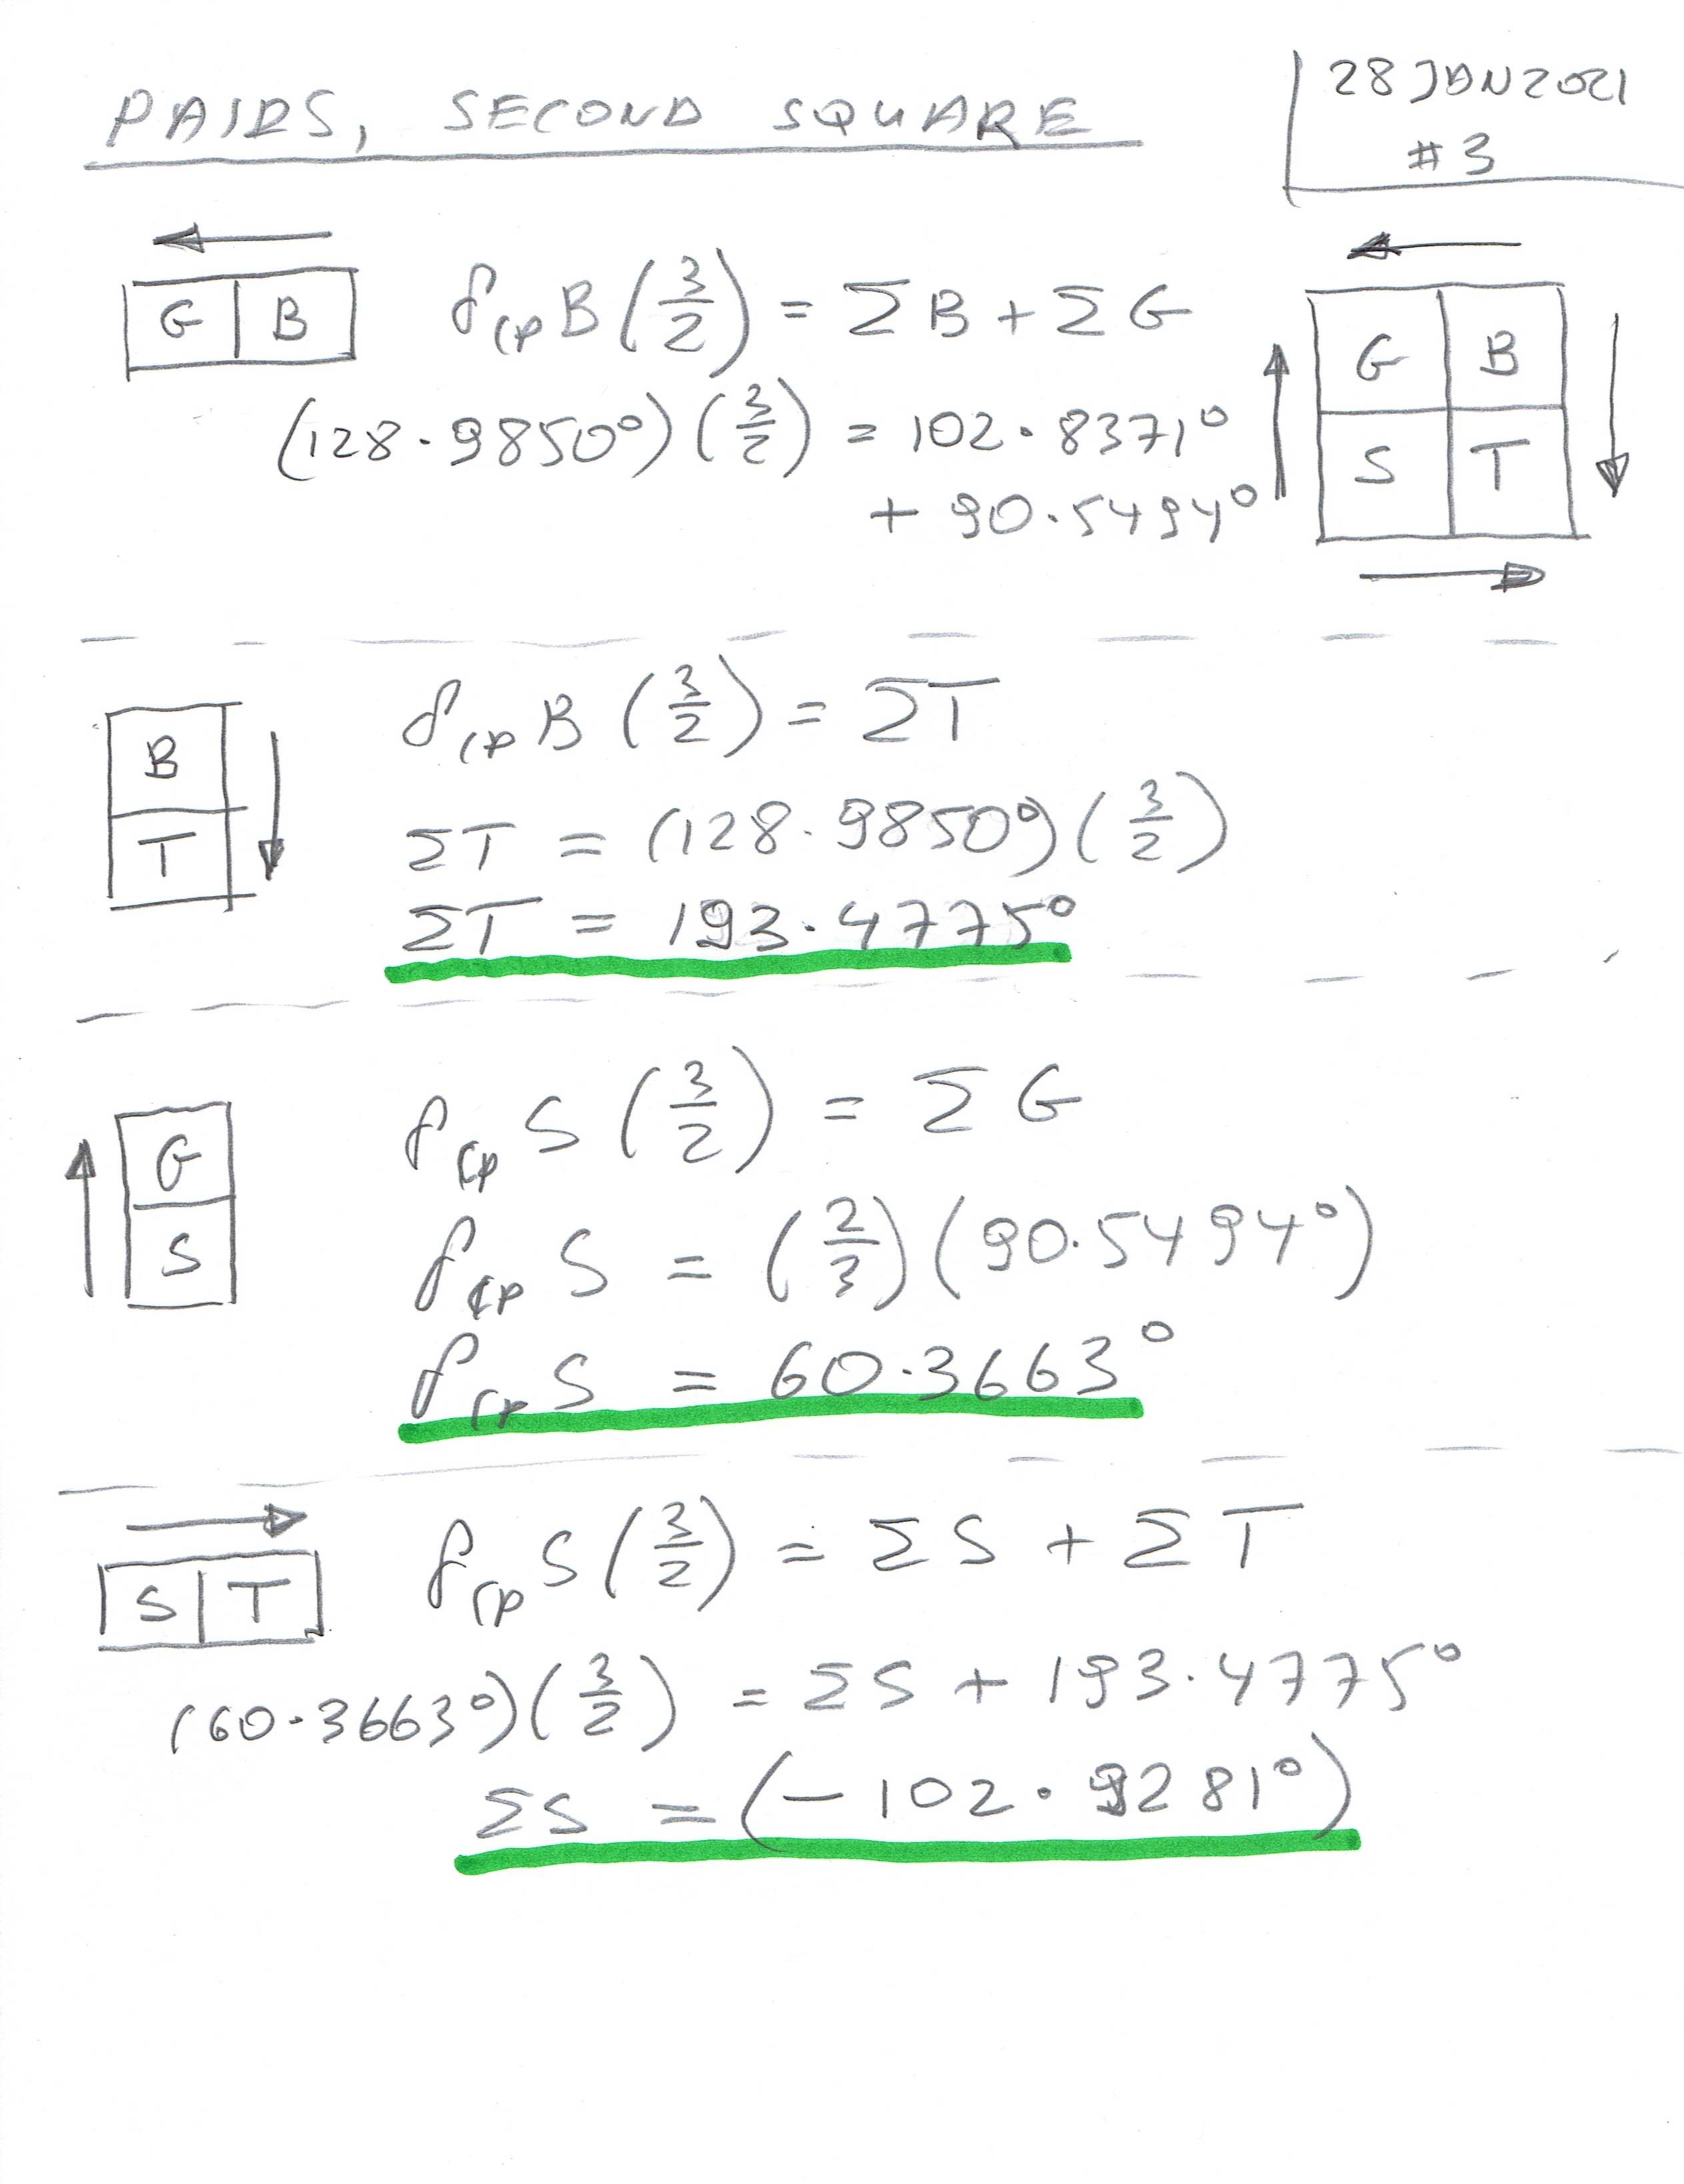 PAIRS, SECOND SQUARE
28 JAN 2021
#3
G B
δcp B (3/2) = ΣB + ΣG
(128.9850°) (3/2) = 102.8371°
+ 90.5494°
G B
S T
B
T
δcp B (3/2) = ΣT
ΣT = (128.9850°) (3/2)
ΣT = 193.4775°
G
S
δcp S (3/2) = ΣG
δcp S = (2/3) (90.5494°)
δcp S = 60.3663°
S T
δcp S (3/2) = ΣS + ΣT
(60.3663°) (3/2) = ΣS + 193.4775°
ΣS = (-102.9281°)